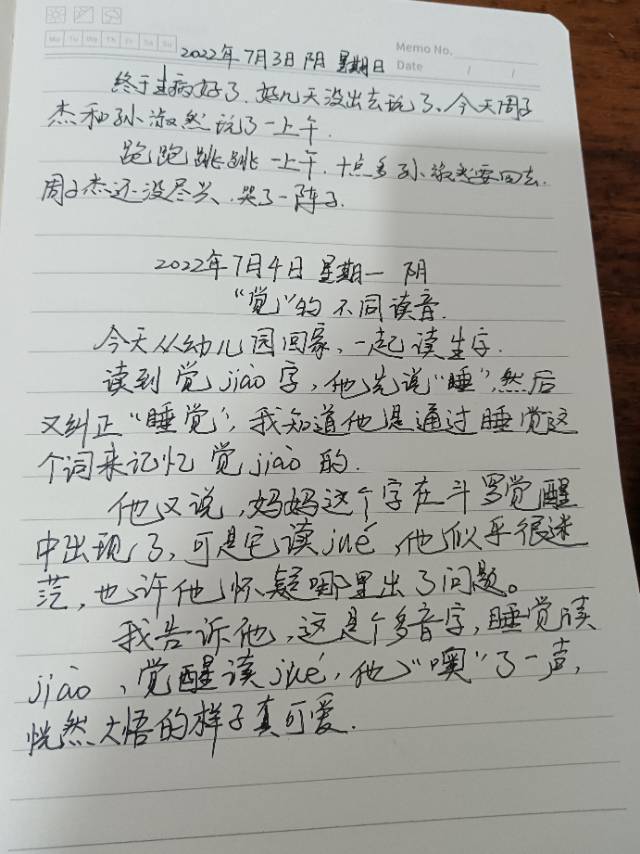 Mo Tu We Th Fr Sa Su
Memo No.
Date / /
2022年7月3日 阴 星期日
终于生病好了、好几天没出去玩了、今天周子
杰和孙淑然玩了一上午.
跑跑跳跳一上午.十点多孙淑然要回去.
周子杰还没尽兴、哭了一阵子.
2022年7月4日 星期一 阴
“觉”的不同读音.
今天从幼儿园回家、一起读生字.
读到觉jiào字,他先说“睡”,然后
又纠正“睡觉”,我知道他是通过睡觉这
个词来记忆觉jiào的.
他又说,妈妈这个字在斗罗觉醒
中出现了,可是它读jué,他似乎很迷
茫,也许他怀疑哪里出了问题。
我告诉他,这是个多音字,睡觉读
jiào、觉醒读jué,他“噢”了一声,
恍然大悟的样子真可爱.